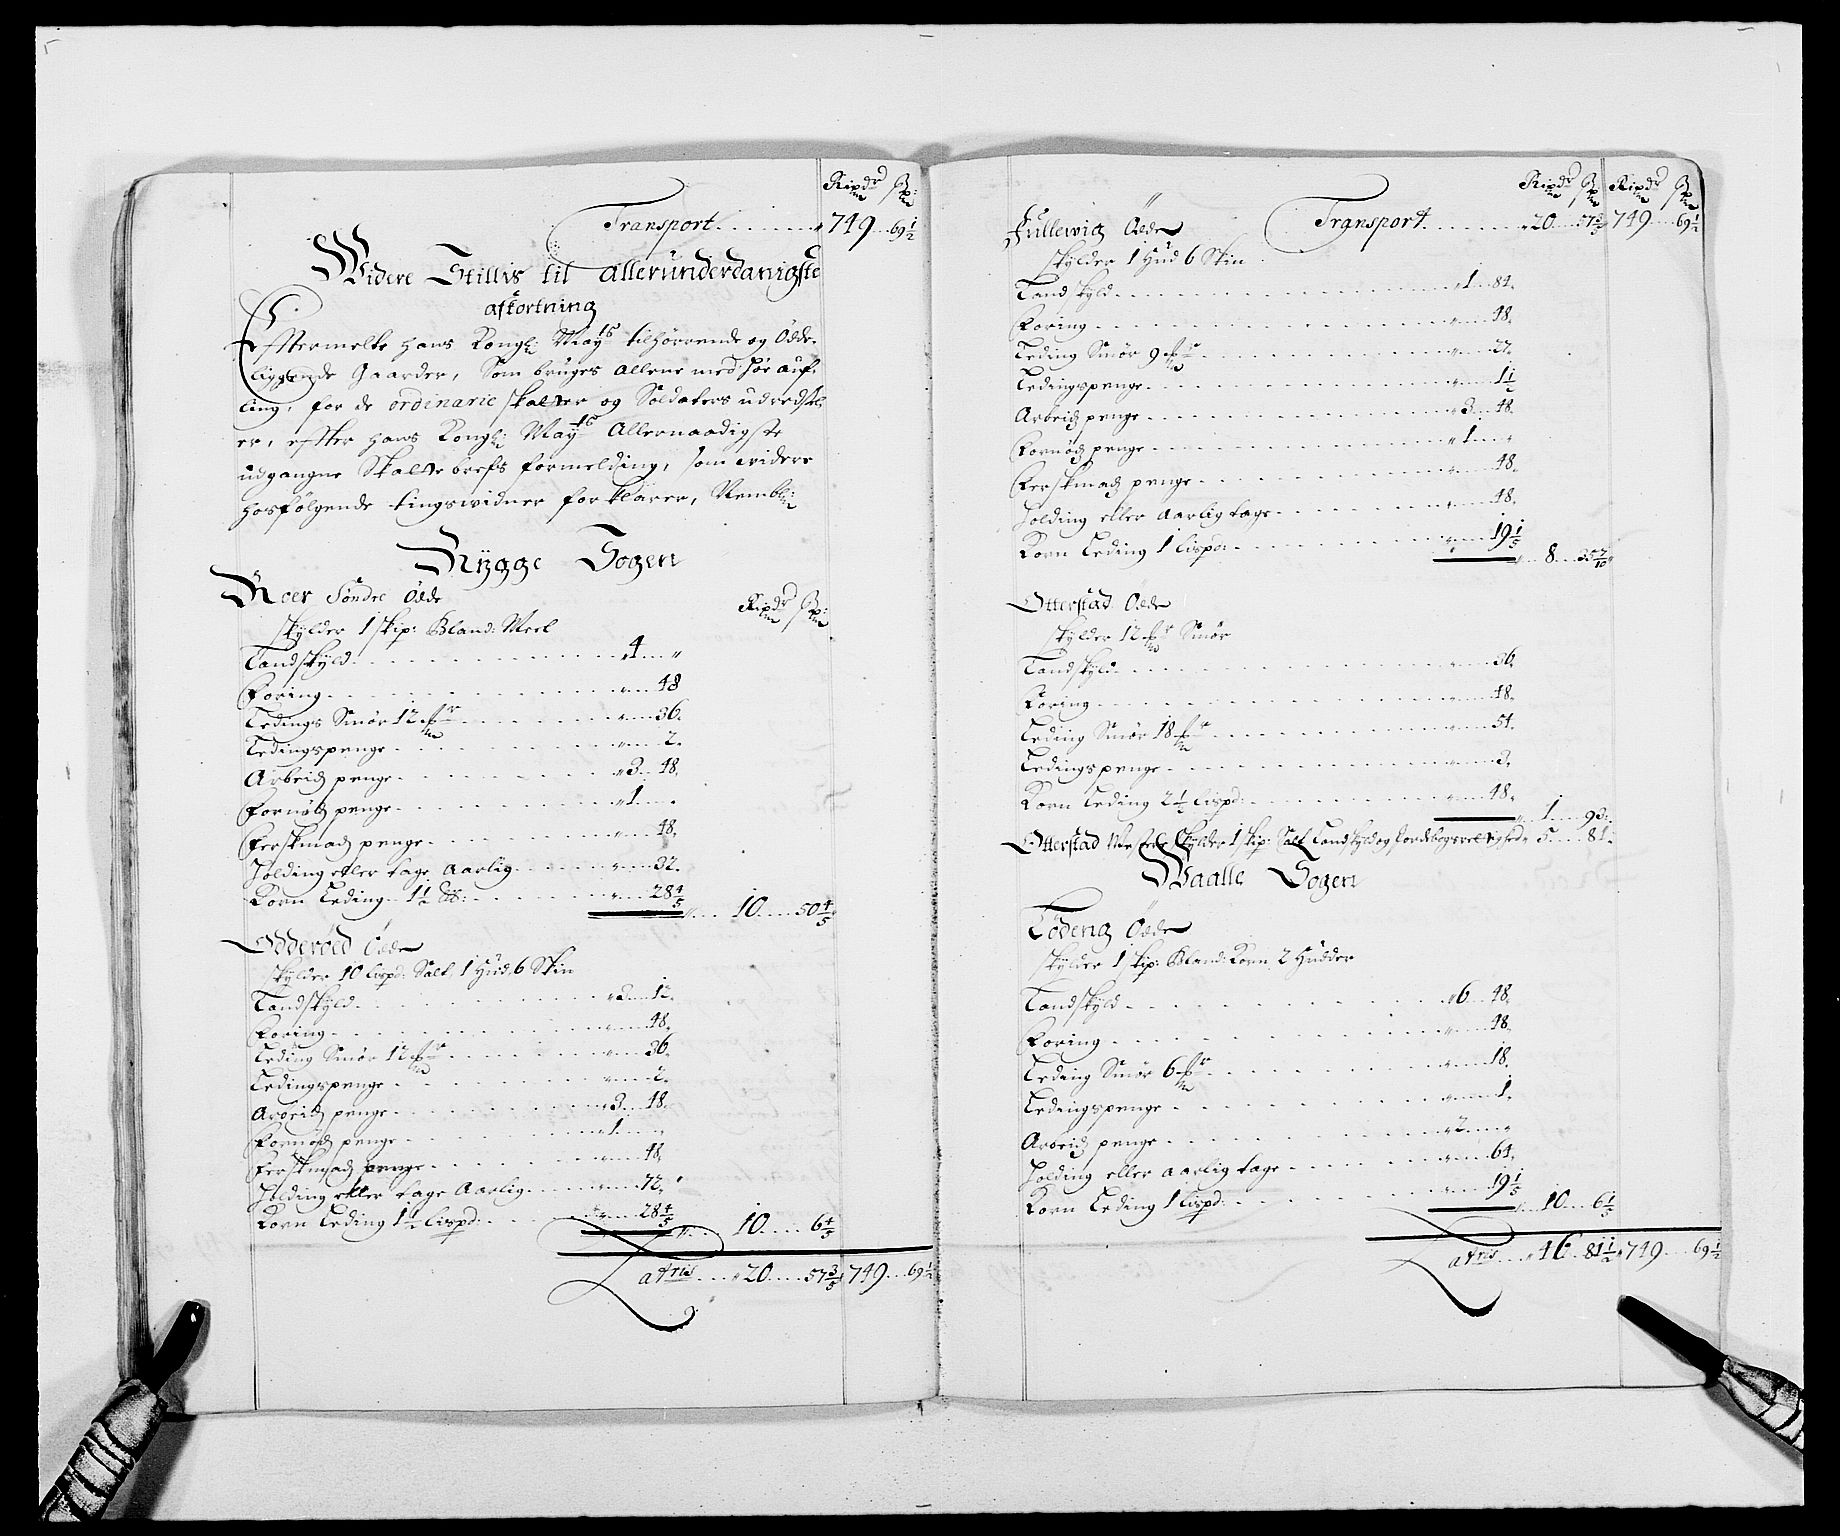 Ripdr ß:
Transport . . . . . . . 749 . . 69 1/2
Widere Stillis til allerunderdanigste
afkortning
Effttermelte hans Kongl: Mayts tilhörrende og Ödde-
liggende Gaarder, Som bruges allene med
ling, for de ordinarie skatter og Soldaters
er, effter hans Kongl: Mayts Allernaadigste
udgangne Skatte brefs formelding, som widere
hosfölgende tingswidner forklarer, Nembl:
Rygge Sogen
Roer Söndre Öde
Ripdr ß:
skylder 1 skip: Bland: Meel
Landskyld . . . . 4 . . "
Foring . . . . 48
Ledings Smör 12 . . . . 36
Ledingspenge . . . . 2
Arbeids penge . . . . 3 . . 48
Fornöds penge . . . . 1 . .
Ferskmads penge . . . . 48
Holding eller tage Aarlig . . . . 32
Korn Leding 1 1/2 . . . . 28 4/5 . . 10 . . 50 4/5
Odderöed Öde
skylder 10 lispd: Salt, 1 Hud 6 Skin
Landskyld . . . . 2 . . 12
Foring . . . . 48
Leding Smör 12 . . . . 36
Ledingspenge . . . . 2
Arbeids penge . . . . 3 . . 48
Fornöds penge . . . . 1 . .
Ferskmads penge . . . . 48
Holding eller tage Aarlig . . . . 72
Korn Leding 1 1/2 lispd: . . . . 28 4/5 . . 10 . . 6 4/5
Latris . . . 20 . . 57 3/5 749 . . 69 1/2
Ripdr ß Ripdr ß
Jullewig Öde Transport . . . . 20 . . 57 3/5 749 . . 69 1/2
skylder 1 Hud 6 Skin
Landskyld . . . . 1 . . 84
Foring . . . . 48
Leding Smör 9 . . . . 27
Ledingspenge . . . . 1 1/2
Arbeids penge . . . . 3 . . 48
Fornöds penge . . . . 1 . . "
Ferskmads penge . . . . 48
Holding eller Aarlig tage . . . . 48
Korn Leding 1 lispd: . . . . 19 1/5 . . 8 . . 35 7/10
Otterstad Öde
skylder 12 Smör
Landskyld . . . . 36
Foring . . . . 48
Leding Smör 18 . . . . 54
Ledingspenge . . . . 3
Korn Leding 2 1/2 lispd: . . . . 48 . . 1 . . 93
Otterstad Westre skylder 1 skip: Salt Landskyld og Fordbogsrettighed 5 . . 81
Waalle Sogen
Lödeng Öde
skylder 1 skip: Bland: Korn 2 Hudder
Landskyld . . . . 6 . . 48
Foring . . . . 48
Leding Smör 6 . . . . 18
Ledingspenge . . . . 1
Arbeids penge . . . . 2 . . "
Holding eller aarlig tage . . . . 64
Korn Leding 1 lispd: . . . . 19 1/5 . . 10 . . 6 1/5
Latris . . . 46 . . 81 1/2 749 . . 69 1/2